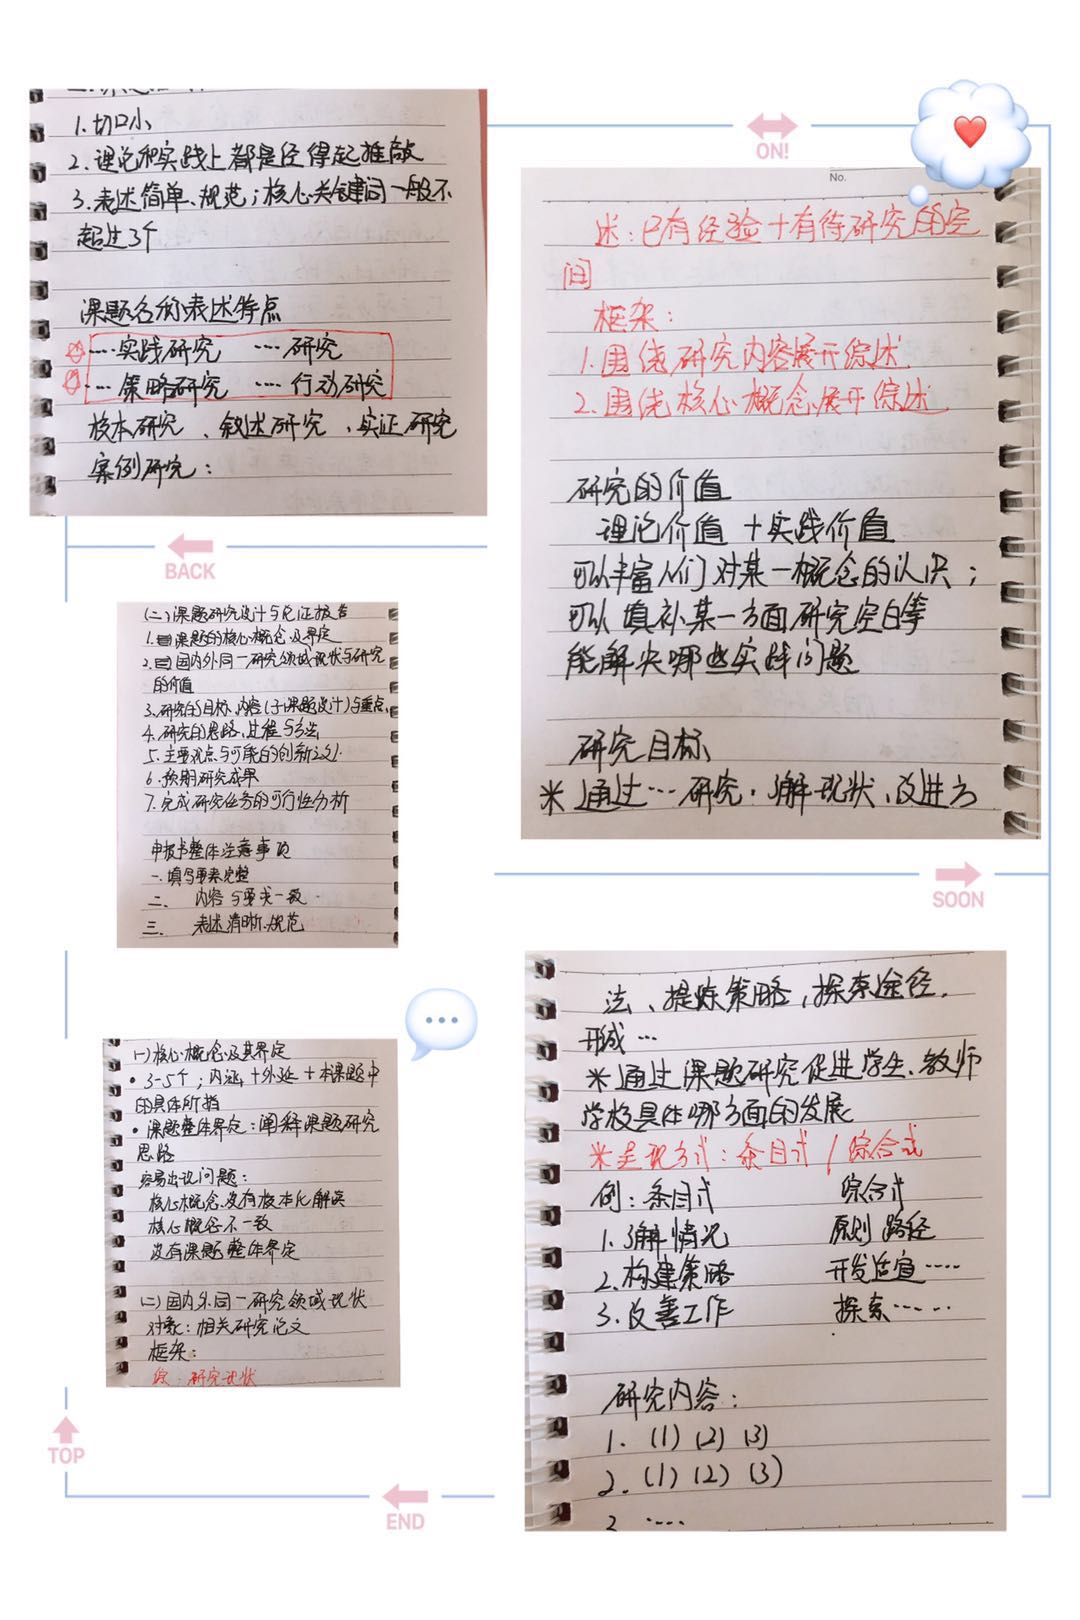 1.切口小
2.理论和实践上都是经得起推敲
3.表述简单、规范；核心关键词一般不
超过3个
课题名称表述特点
····实践研究 ····研究
····策略研究 ····行动研究
校本研究、叙述研究、实证研究
案例研究：
BACK
ON!
No.
述：已有经验+有待研究的空
间
框架：
1.围绕研究内容展开综述
2.围绕核心概念展开综述
研究的价值
理论价值+实践价值
可以丰富人们对某一概念的认识；
可以填补某一方面研究空白等
能解决哪些实践问题
研究目标
※通过···研究，了解现状、改进方
SOON
(二)课题研究设计与论证报告
1.课题的核心概念及界定
2.国内外同一研究领域现状与研究
的价值
3.研究的目标、内容(子课题设计)与重点
4.研究的思路、过程与方法
5.主要观点与可能的创新之处
6.预期研究成果
7.完成研究任务的可行性分析
申报书整体注意事项
一.填写要素完整
二、内容与要求一致
三、表述清晰、规范
(一)核心概念及其界定
·3-5个；内涵+外延+本课题中
的具体所指
·课题整体界定：阐释课题研究
思路
容易出现问题：
核心概念没有校本化解读
核心概念不一致
没有课题整体界定
(二)国内外同一研究领域现状
对象：相关研究论文
框架：
综：研究现状
法、提炼策略，探索途径，
形成···
※通过课题研究促进学生、教师
学校具体哪方面的发展
※呈现方式：条目式/综合式
例：条目式 综合式
1.了解情况 原则 路径
2.构建策略 开发适宜·····
3.改善工作 探索······
研究内容：
1. (1) (2) (3)
2. (1) (2) (3)
3 ····
TOP
END